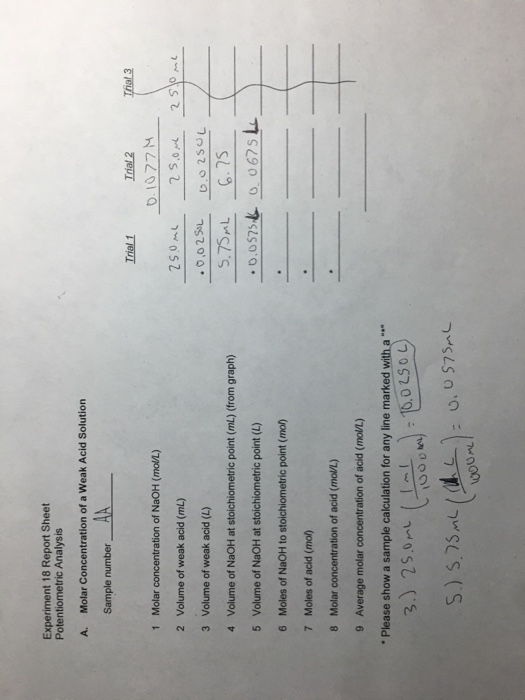 Experiment 18 Report Sheet
Potentiometric Analysis
A. Molar Concentration of a Weak Acid Solution
Sample number AA
Trial 1 Trial 2 Trial 3
1 Molar concentration of NaOH (mol/L) 0.1077 M
2 Volume of weak acid (mL) 25.0 mL 25.0 mL 25.0 mL
3 Volume of weak acid (L) • 0.0250L 0.0250L
4 Volume of NaOH at stoichiometric point (mL) (from graph) 5.75mL 6.75
5 Volume of NaOH at stoichiometric point (L) • 0.0575 0.0675
6 Moles of NaOH to stoichiometric point (mol) •
7 Moles of acid (mol) •
8 Molar concentration of acid (mol/L) •
9 Average molar concentration of acid (mol/L)
* Please show a sample calculation for any line marked with a "*"
3.) 25.0mL (1ml / 1000mL) = 0.0250L
5.) 5.75mL ( L / 1000mL) = 0.0575mL